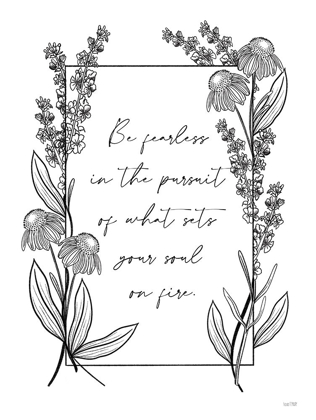 Be fearless
in the pursuit
of what sets
your soul
on fire.